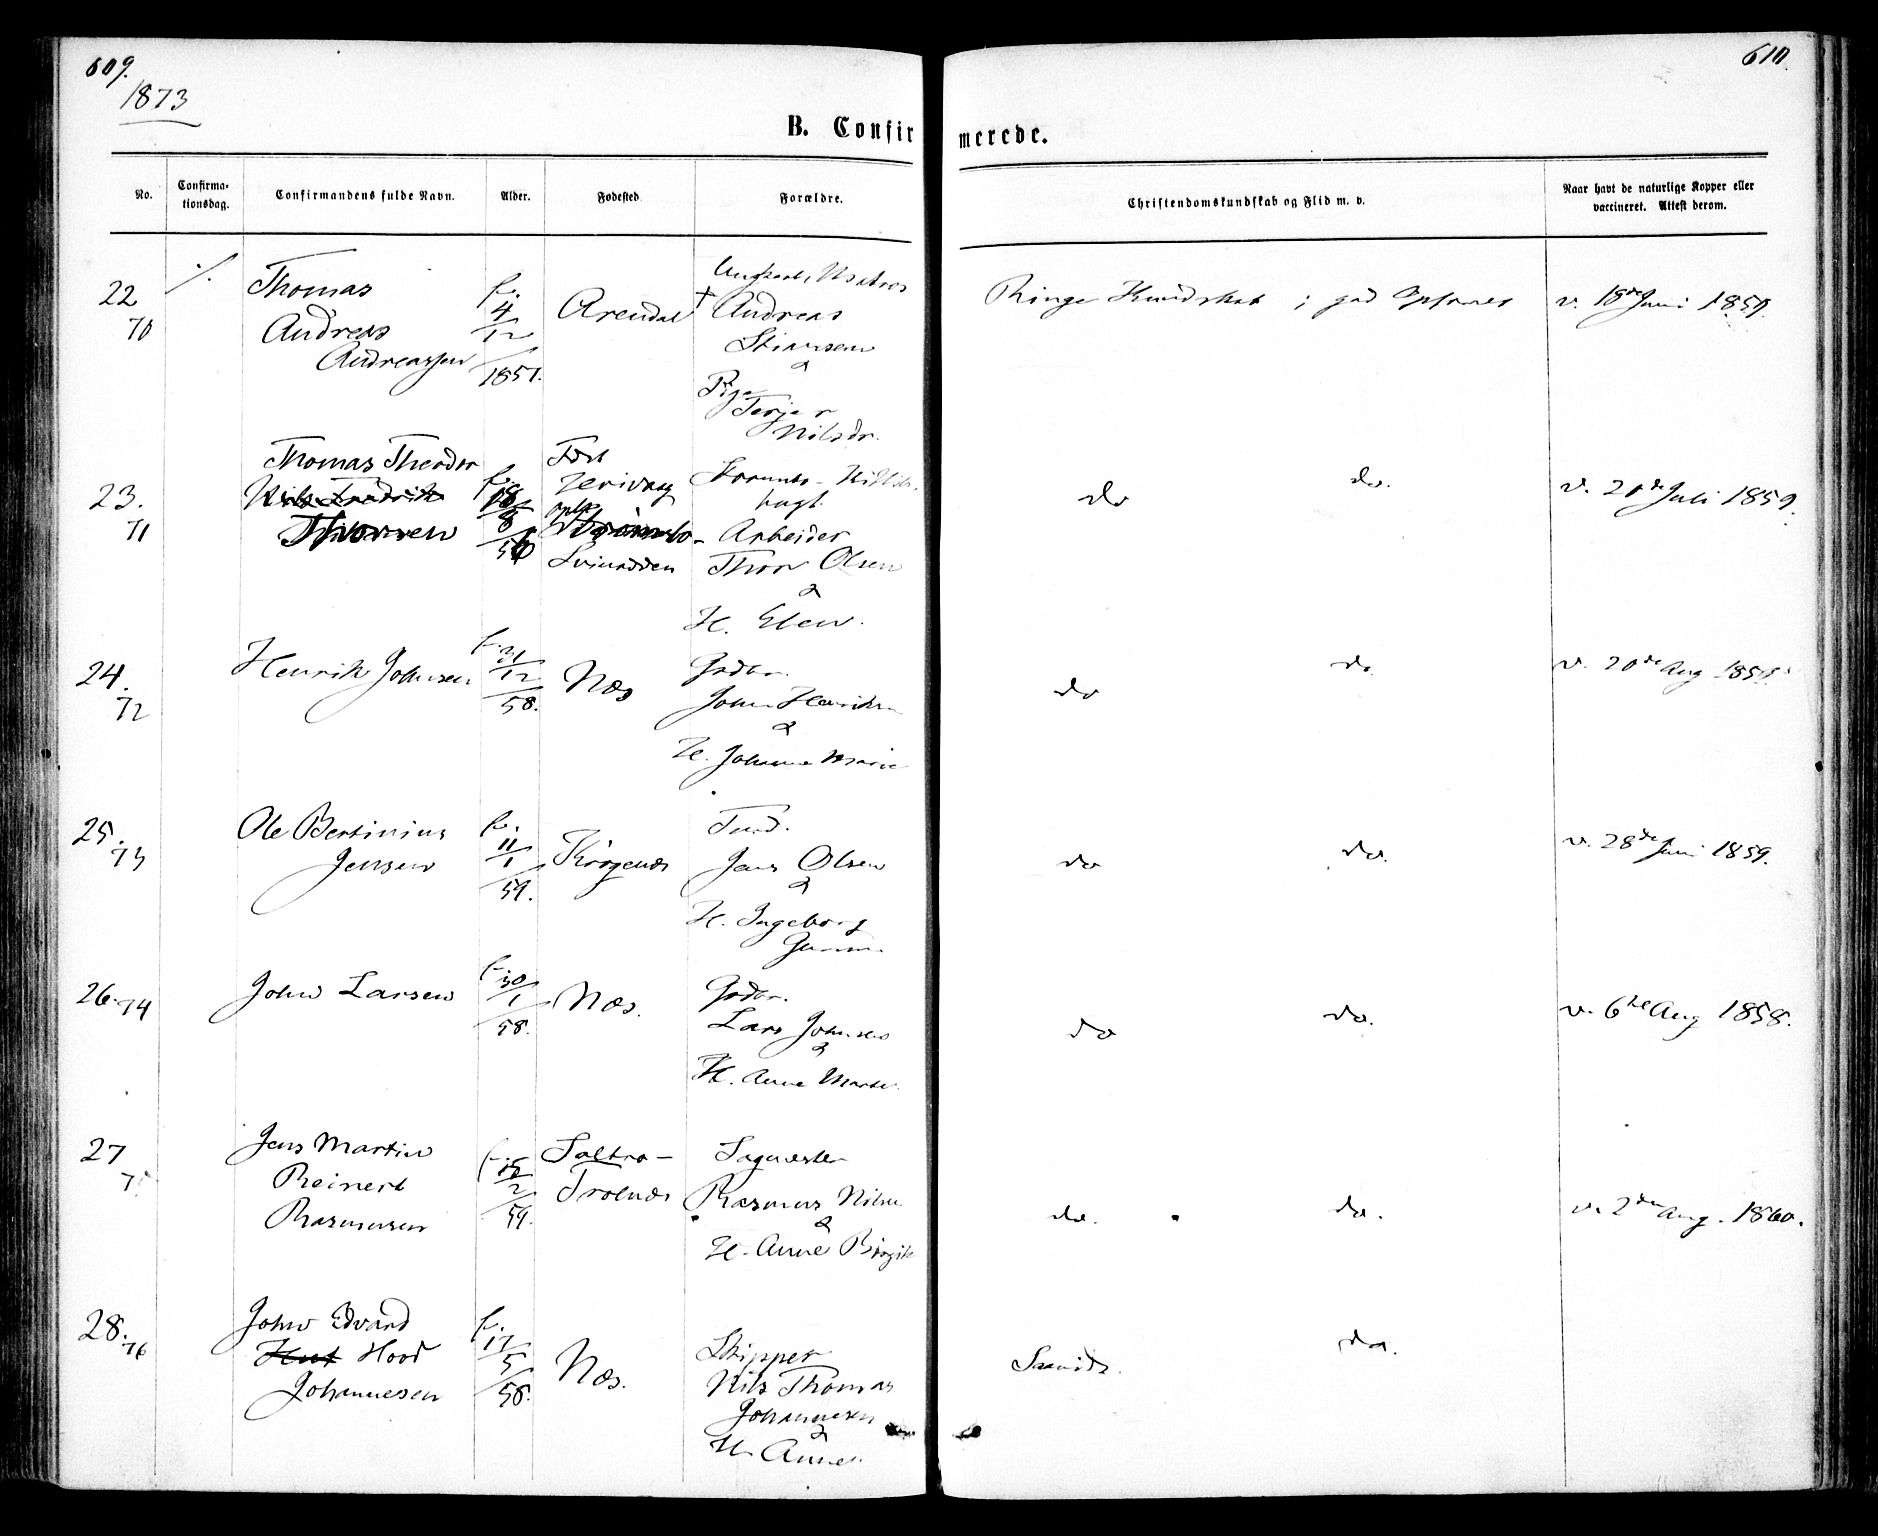 609.
610.
1873
B. Confirmerede.
No.
Confirma-
tionsdag.
Confirmandens fulde Navn.
Alder.
Fødested
Forældre.
Christendomskundskab og Flid m. v.
Naar havt de naturlige Kopper eller
vaccineret. Attest derom.
22
70
Thomas
Andreas
Andreassen
f.
4/12
1857.
Arendal
Ungkarl, Matros
† Andreas
&
Pige
Terjer
Nilsdr.
Ringe Kundskab; god Opførsel
v. 18de Juni 1859.
23.
71
Thomas Theodor
Thorsen
f.
18/8
56
Født
opls
Arbeider
Thor Olsen
&
H. Elen.
do
do.
v. 20de Juli 1859.
24.
72
Henrik Johnsen
f. 31/12
58.
Næs
Gdbr.
John Henriksn
&
H. Johanne Marie
do
do
v. 20de Aug 1859.
25.
73
Ole Bertinius
Jensen
f.
11/1
59.
Jens Olsen
&
H. Ingeborg
do
do.
v. 28de Juni 1859.
26. 74
John Larsen
f. 30/1
58.
Næs.
Gdbr.
Lars Johnsen
&
H. Anne Marte
do
do.
v. 6te Aug 1858.
27
Jens Martin
Reinert
Rasmussen
f. 15/2
59.
Saltrø-
Rasmus Nilsen
&
H. Anne Birgit
do.
do.
v. 2den Aug. 1860.
28. 76
John Edvard
Hood
Johannesen
f.
17/5
58.
Næs.
Skipper
Nils Thomas
Johannesen
&
H. Anne
do.